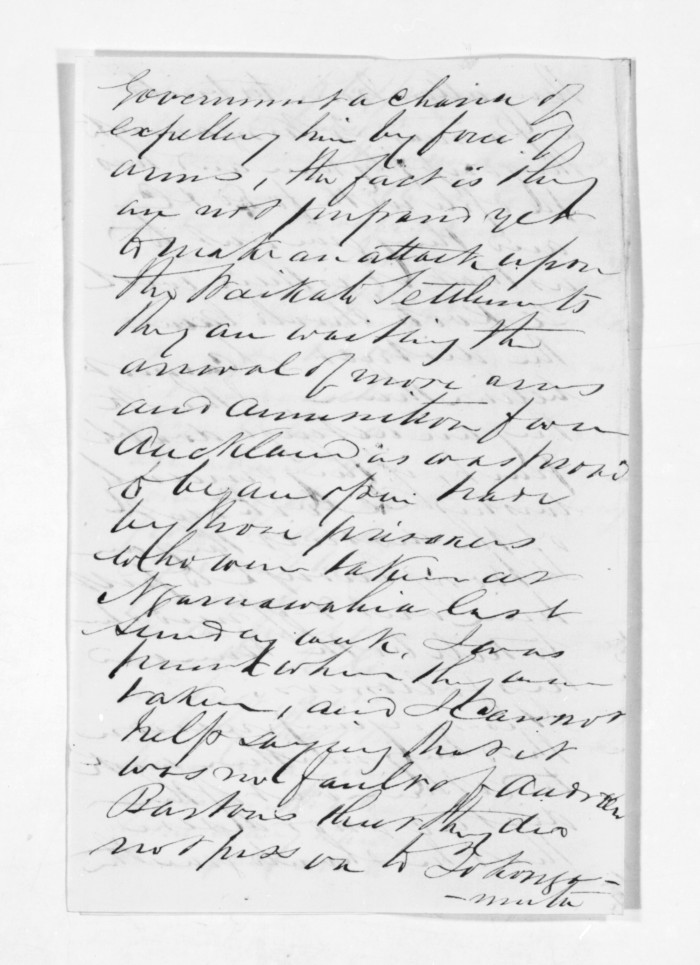 Government a chance of
expelling him by force of
arms, the fact is they
are not prepared yet
to make an attack upon
the Waikato Settlements
they are waiting the
arrival of more arms
and ammunition from
Auckland as was proved
to be an open trade
by those prisoners
who were taken at
Ngaruawahia last
Sunday week. I was
present when they were
taken, and I cannot
help saying that it
was no fault of Andrew
Bartons that they did
not pass on to Tokanga-
-mutu